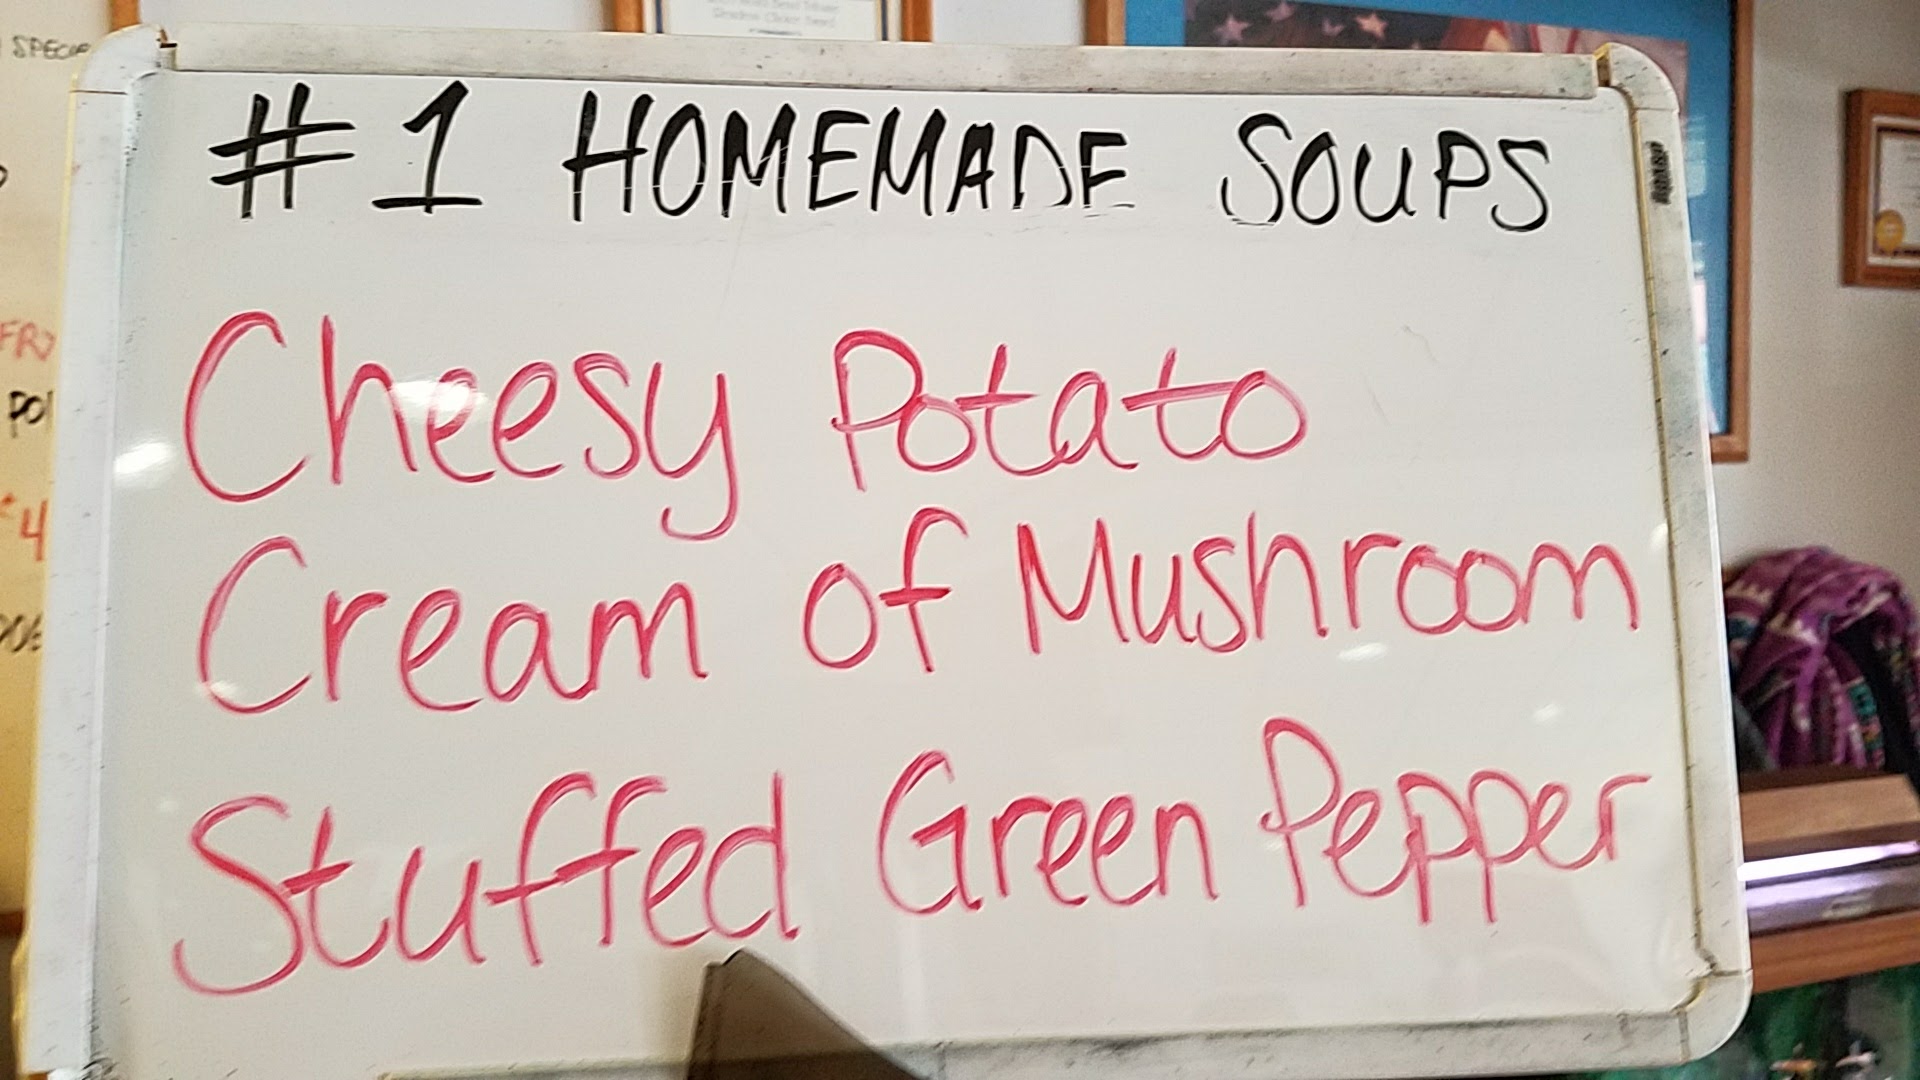 #1 HOMEMADE SOUPS
Cheesy Potato
Cream of Mushroom
Stuffed Green Pepper